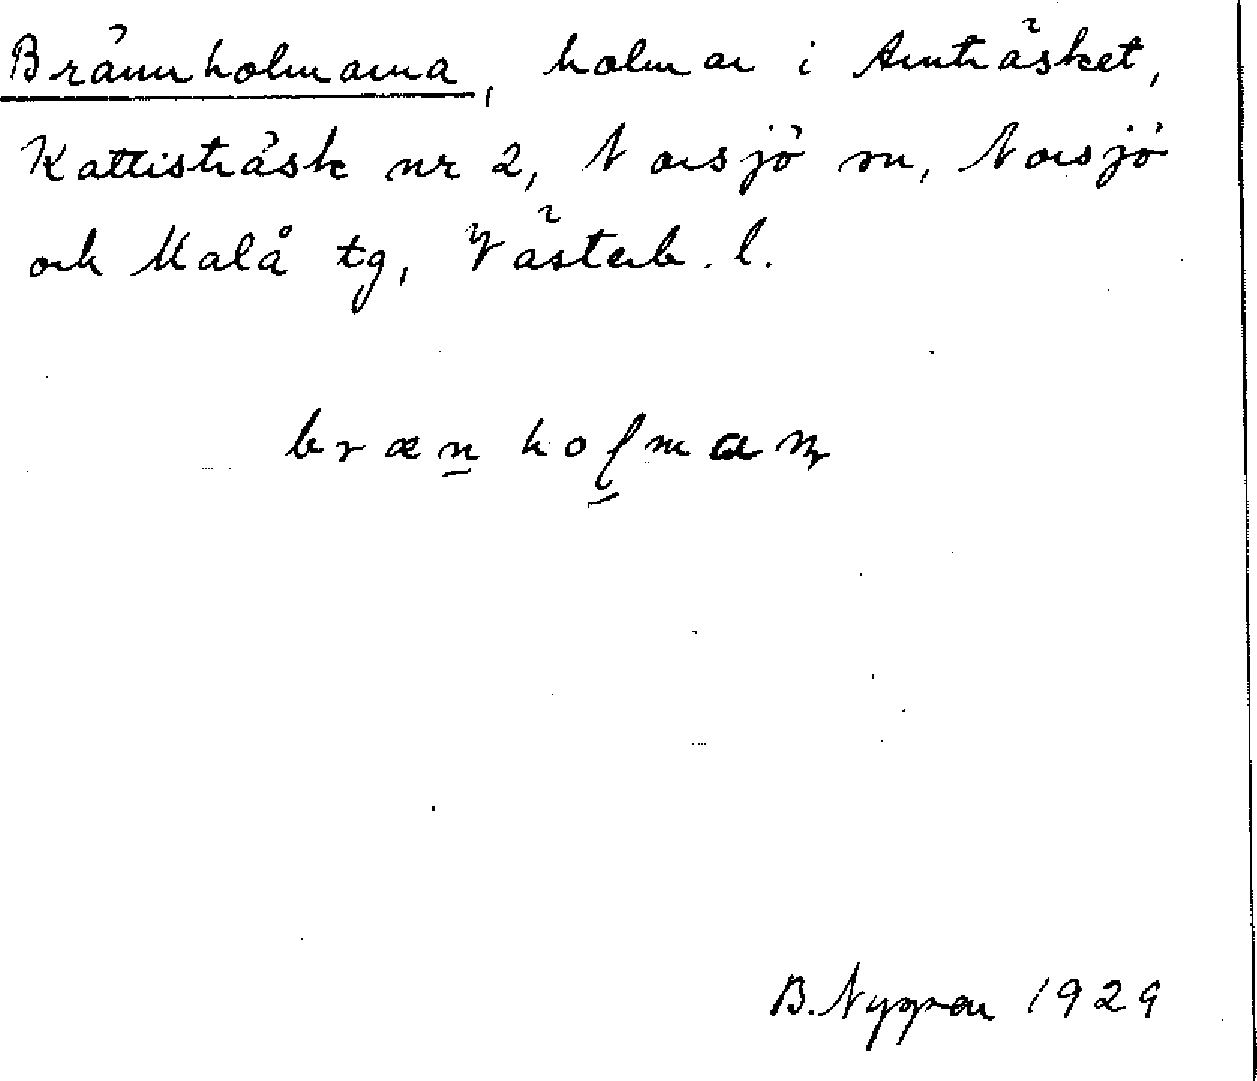 Brännholmarna, holmar i Arnträsket,
Kattisträsk nr 2, Norsjö sn, Norsjö
och Malå tg, Västerb. l.
bræn̲holmaɳ
B. Nygren 1929